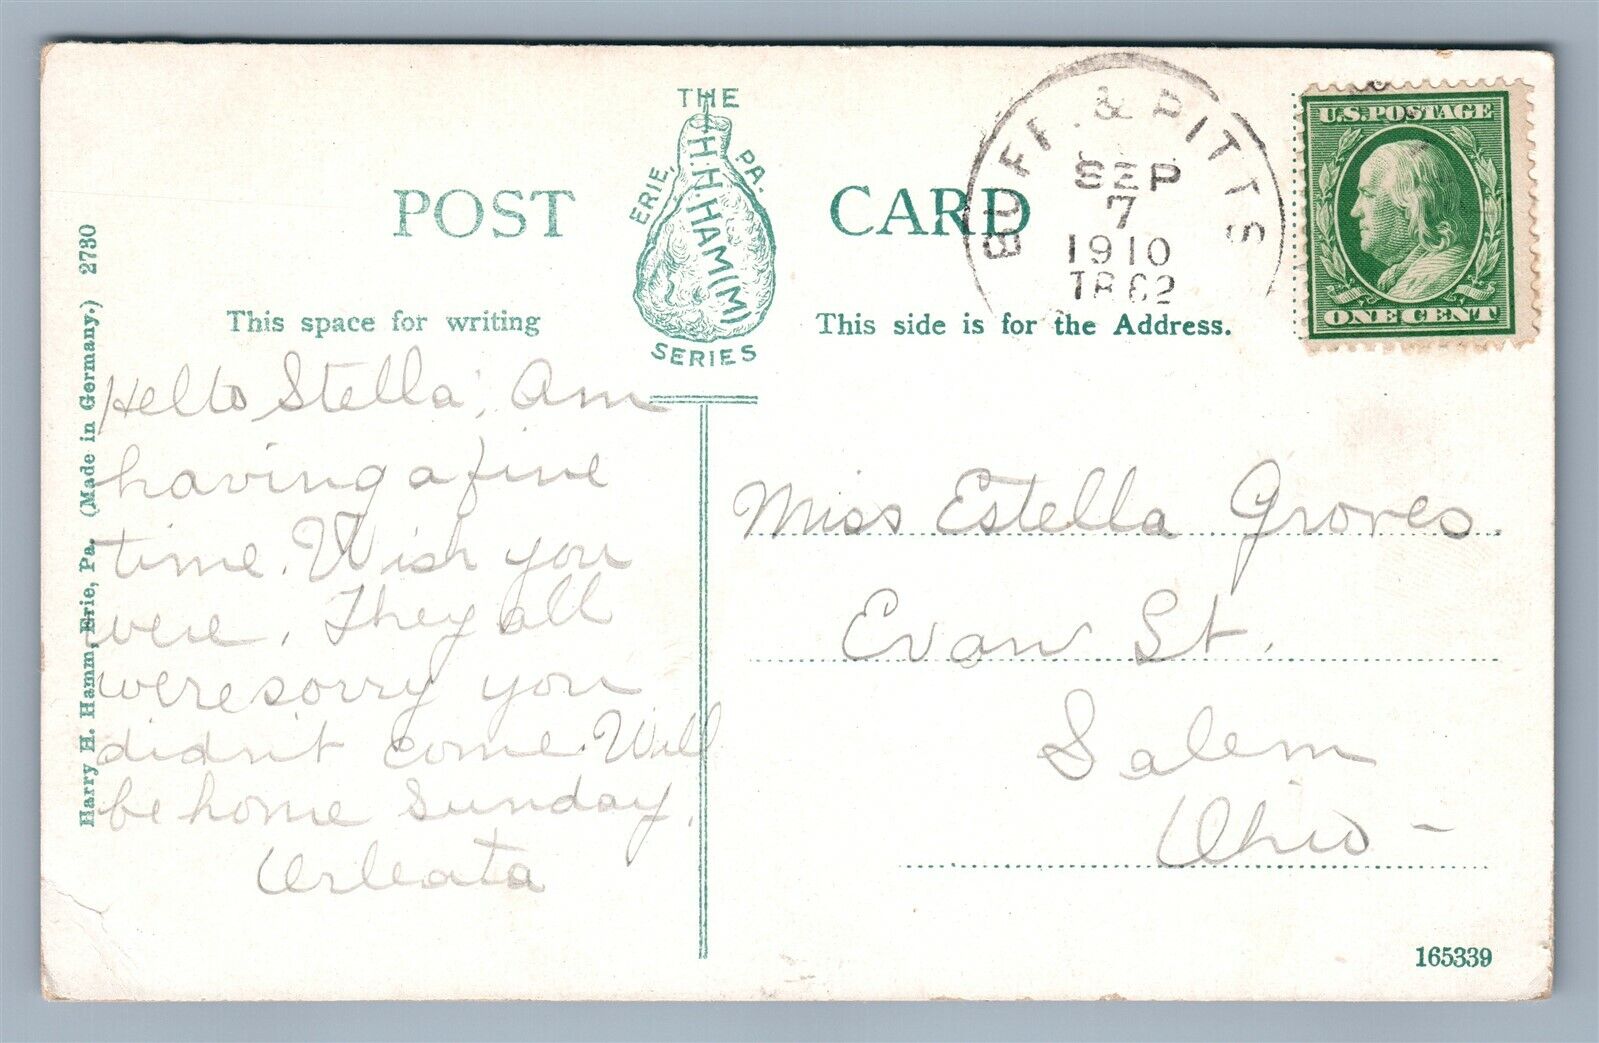 THE
H.H.HAM(M)
ERIE, PA.
SERIES
POST CARD
BUFF. & PITTS
SEP
7
1910
U.S. POSTAGE
ONE CENT
This space for writing
This side is for the Address.
Harry H. Hamm, Erie, Pa. (Made in Germany.) 2730
Hello Stella, Am
having a fine
time. Wish you
were. They all
were sorry you
didn't come. Will
be home Sunday.
Miss Estella Groves.
Evan St.
Salem
Ohio -
165339